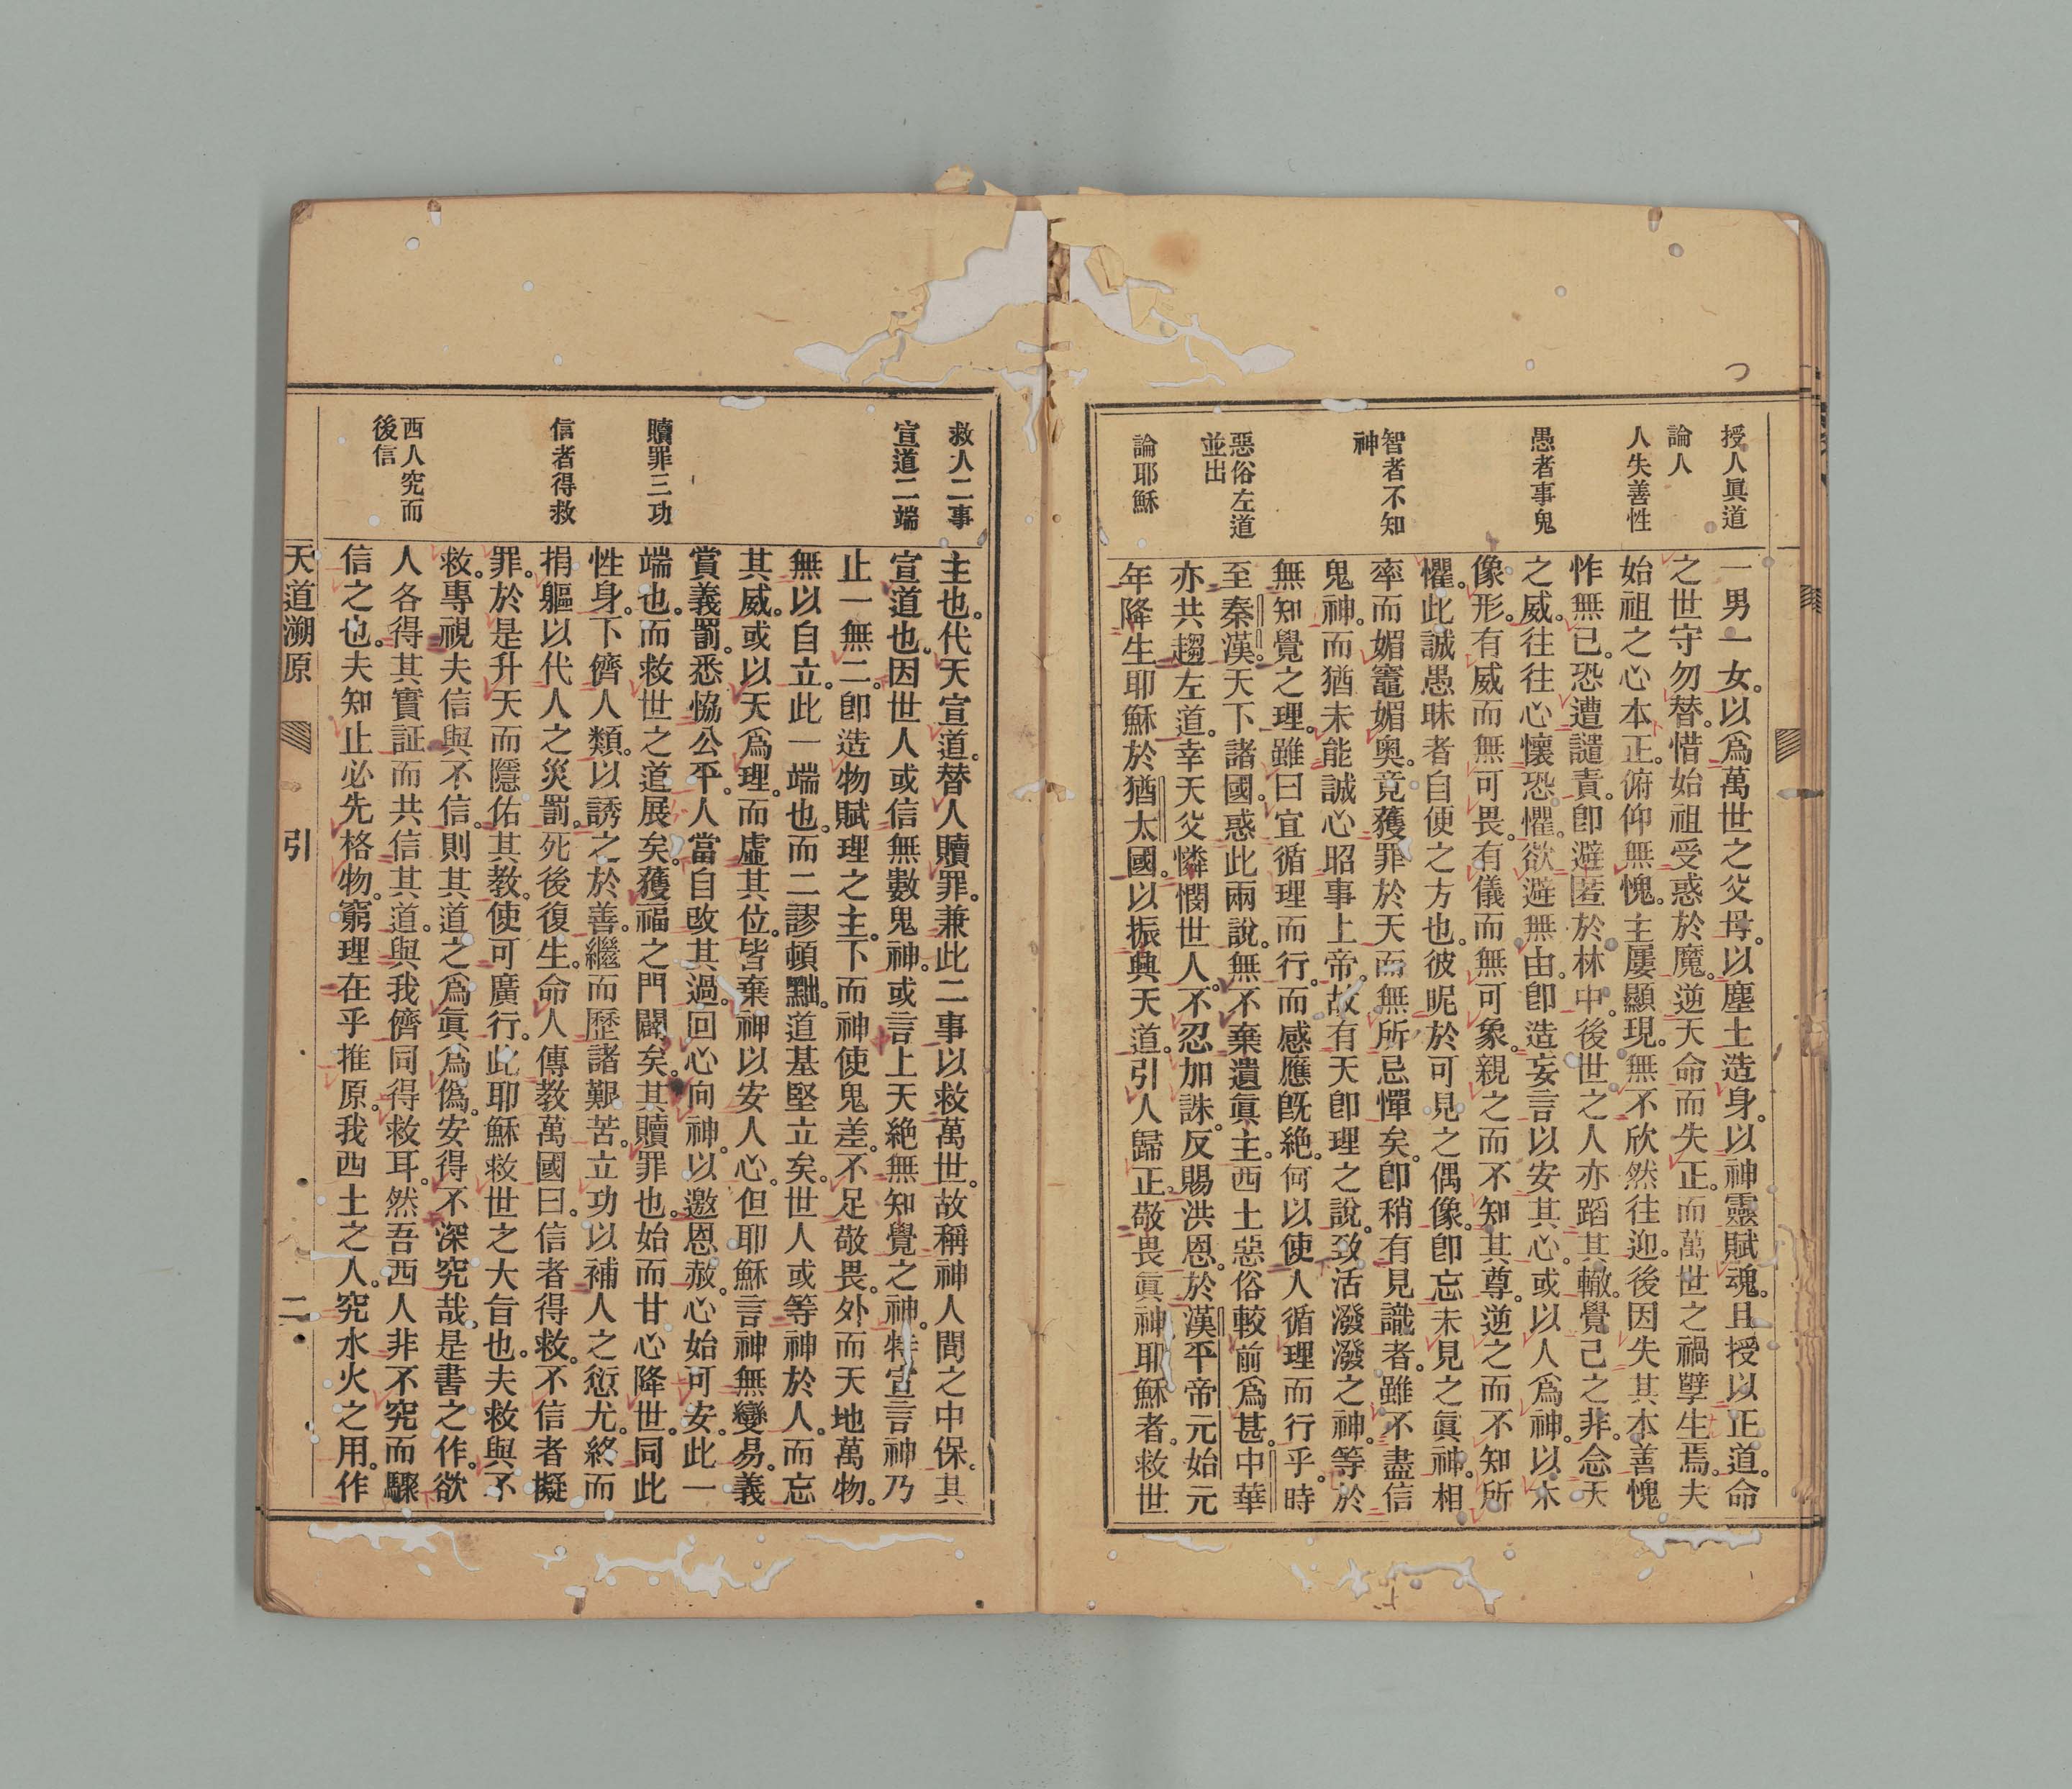 授人眞道
論人
人失善性
愚者事鬼
智者不知
神
惡俗左道
並出
論耶穌
一男一女。以爲萬世之父母。以塵土造身。以神靈賦魂。且授以正道。命
之世守勿替。惜始祖受惑於魔。逆天命而失正。而萬世之禍孽生焉。夫
始祖之心本正。俯仰無愧。主屢顯現。無不欣然往迎。後因失其本善愧
怍無已。恐遭譴責。卽避匿於林中。後世之人亦蹈其轍。覺己之非。念天
之威。往往心懷恐懼。欲避無由。卽造妄言以安其心。或以人爲神。以木
像形。有威而無可畏。有儀而無可象。親之而不知其尊。逆之而不知所
懼。此誠愚昧者自便之方也。彼昵於可見之偶像。卽忘未見之眞神。相
率而媚竈媚奧。竟獲罪於天而無所忌憚矣。卽稍有見識者。雖不盡信
鬼神。而猶未能誠心昭事上帝。故有天卽理之說。致活潑潑之神。等於
無知覺之理。雖曰宜循理而行。而感應旣絶。何以使人循理而行乎。時
至秦漢。天下諸國。惑此兩說。無不棄遺眞主。西土惡俗較前爲甚。中華
亦共趨左道。幸天父憐憫世人。不忍加誅。反賜洪恩。於漢平帝元始元
年降生耶穌於猶太國。以振興天道。引人歸正。敬畏眞神耶穌者。救世
救人二事
宣道二端
贖罪三功
信者得救
西人究而
後信
主也。代天宣道。替人贖罪。兼此二事以救萬世。故稱神人間之中保。其
宣道也。因世人或信無數鬼神。或言上天絶無知覺之神。特宣言神乃
止一無二。卽造物賦理之主。下而神使鬼差。不足敬畏。外而天地萬物。
無以自立。此一端也。而二謬頓黜。道基堅立矣。世人或等神於人。而忘
其威。或以天爲理。而虛其位。皆棄神以安人心。但耶穌言神無變易。義
賞義罰。悉恊公平。人當自改其過。回心向神。以邀恩赦。心始可安。此一
端也。而救世之道展矣。獲福之門闢矣。其贖罪也。始而甘心降世。同此
性身。下儕人類。以誘之於善。繼而歷諸艱苦。立功以補人之愆尤。終而
捐軀以代人之災罰。死後復生。命人傳教萬國曰。信者得救。不信者擬
罪。於是升天而隱佑其教。使可廣行。此耶穌救世之大旨也。夫救與不
救。專視夫信與不信。則其道之爲眞爲僞。安得不深究哉。是書之作。欲
人各得其實証而共信其道。與我儕同得救耳。然吾西人非不究而驟
信之也。夫知止必先格物。窮理在乎推原。我西土之人。究水火之用。作
天道溯原
引
二